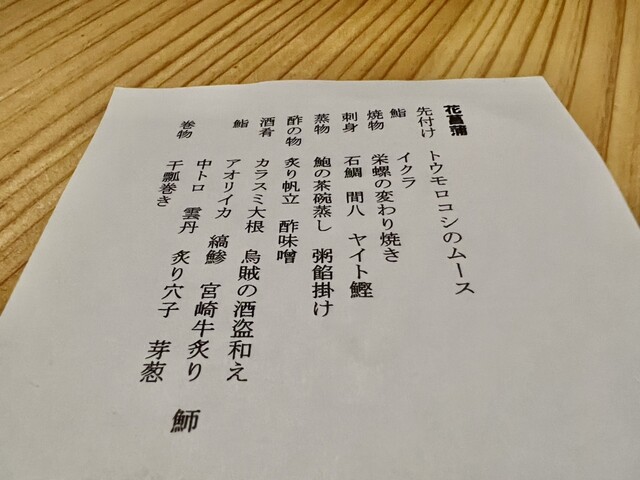 花菖蒲
先付け トウモロコシのムース
鮨 イクラ
焼物 栄螺の変わり焼き
刺身 石鯛 間八 ヤイト鰹
蒸物 鮑の茶碗蒸し 粥餡掛け
酢の物 炙り帆立 酢味噌
酒肴 カラスミ大根 烏賊の酒盗和え
鮨 アオリイカ 縞鯵 宮崎牛炙り 鰤
中トロ 雲丹 炙り穴子 芽葱
巻物 干瓢巻き